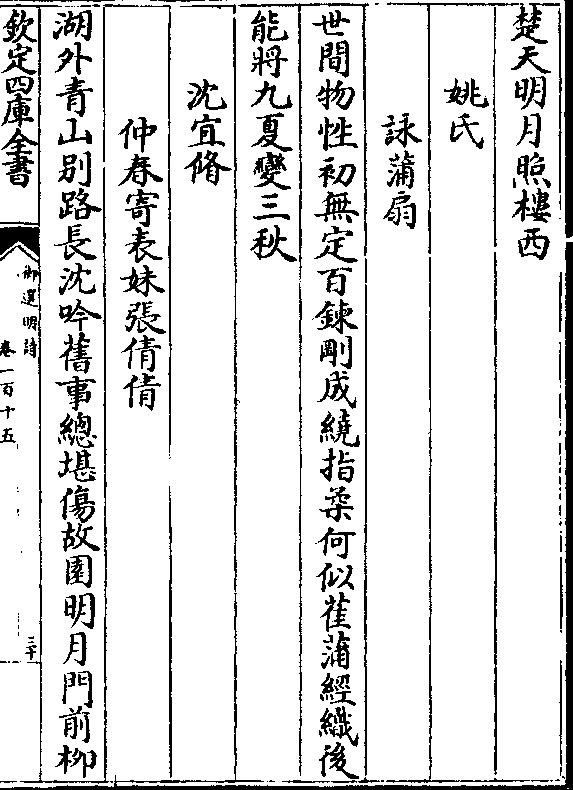 楚天明月照樓西
姚氏
詠蒲扇
世間物性初無定百鍊剛成繞指柔何似萑蒲經織後
能將九夏變三秋
沈宜脩
仲春寄表妹張倩倩
湖外青山别路長沈吟舊事總堪傷故園明月門前柳
欽定四庫全書
御選明詩
卷一百十五
三十